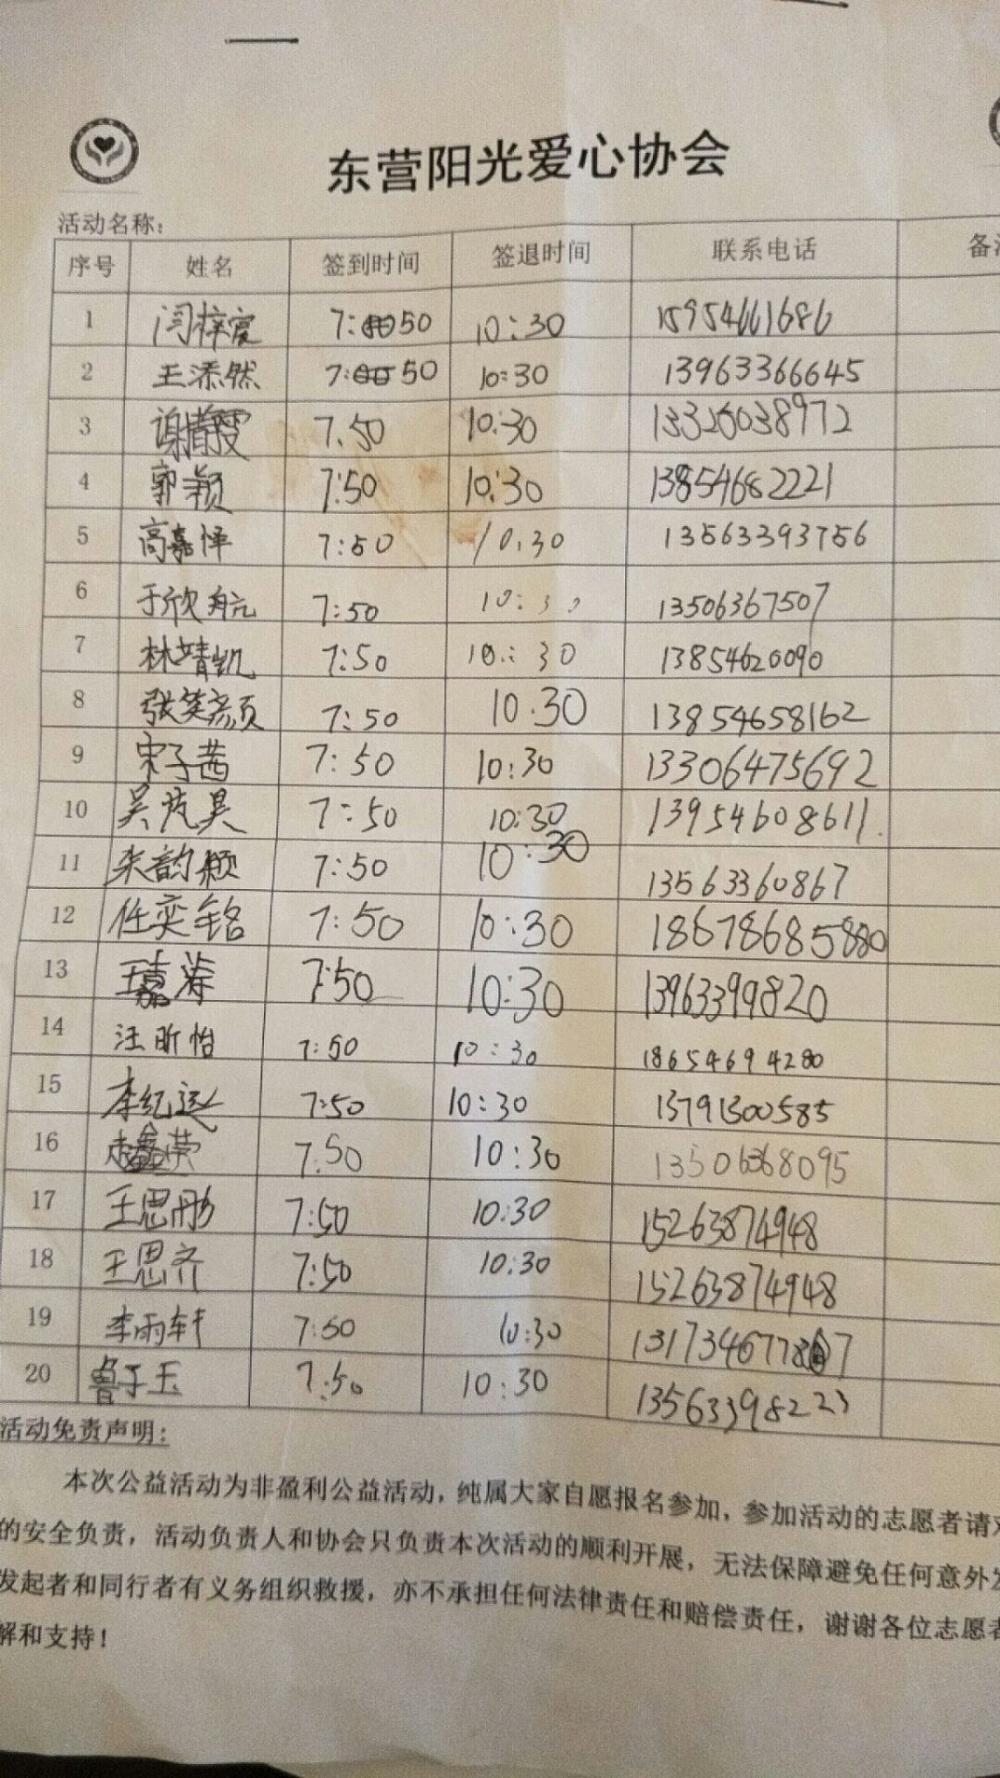 东营阳光爱心协会
活动名称：
序号 姓名 签到时间 签退时间 联系电话
1 闫梓宸 7:50 10:30 15954661686
2 王添然 7:50 10:30 13963366645
3 谢靖雯 7.50 10:30 13325038972
4 郭颖 7:50 10:30 13854682221
5 高嘉怿 7:50 10.30 13563393756
6 于欣航 7:50 10:30 13506367507
7 林靖凯 7:50 10:30 13854620090
8 张笑颜 7:50 10.30 13854658162
9 宋子茜 7:50 10:30 13306475692
10 吴芃昊 7:50 10:30 13954608611.
11 朱韵颖 7:50 10:30 13563360867
12 任奕铭 7:50 10:30 18678685880
13 王嘉涛 7:50 10:30 13963399820
14 汪昕怡 7:50 10:30 18654694280
15 李纪远 7:50 10:30 13791300585
16 7.50 10:30 13506368095
17 王思彤 7:50 10:30 15263874948
18 王思齐 7:50 10:30 15263874948
19 李雨轩 7:50 10:30
20 鲁子玉 7:50 10:30 13563398223
活动免责声明：
本次公益活动为非盈利公益活动，纯属大家自愿报名参加，参加活动的志愿者请对
的安全负责，活动负责人和协会只负责本次活动的顺利开展，无法保障避免任何意外发
发起者和同行者有义务组织救援，亦不承担任何法律责任和赔偿责任，谢谢各位志愿者
解和支持！